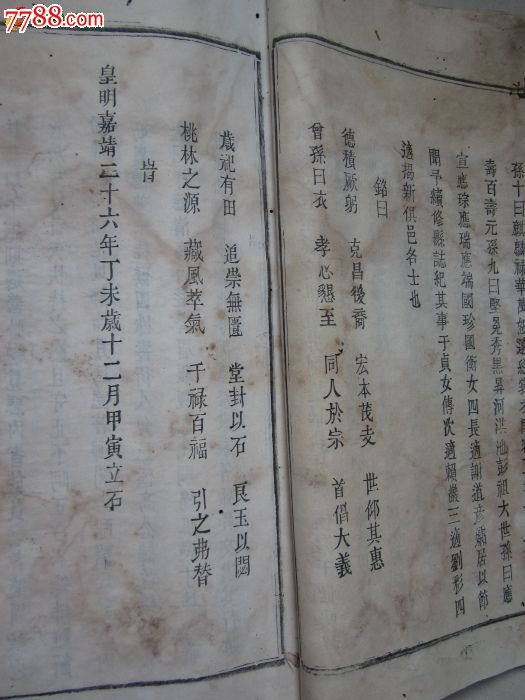 7788.com
中国收藏热线
孫十曰麒麟祿華萬
壽百壽元孫九曰堅冕秀黑昇河淇池彭祖大世孫曰應
宣應琮應瑞應端國珍國衡女四長適謝道孀居以節
聞予續修縣誌紀其事于貞女傳次適賴三適劉彤四
適揭新俱邑名士也
銘曰
德積厥躬 克昌後裔 宏本茂支 世仰其惠
曾孫曰衣 孝心懇至 同人於宗 首倡大義
歲祀有田 追崇無匱 堂封以石 良玉以閟
桃林之源 藏風萃氣 千祿百福 引之弗替
旹
皇明嘉靖二十六年丁未歲十二月甲寅立石